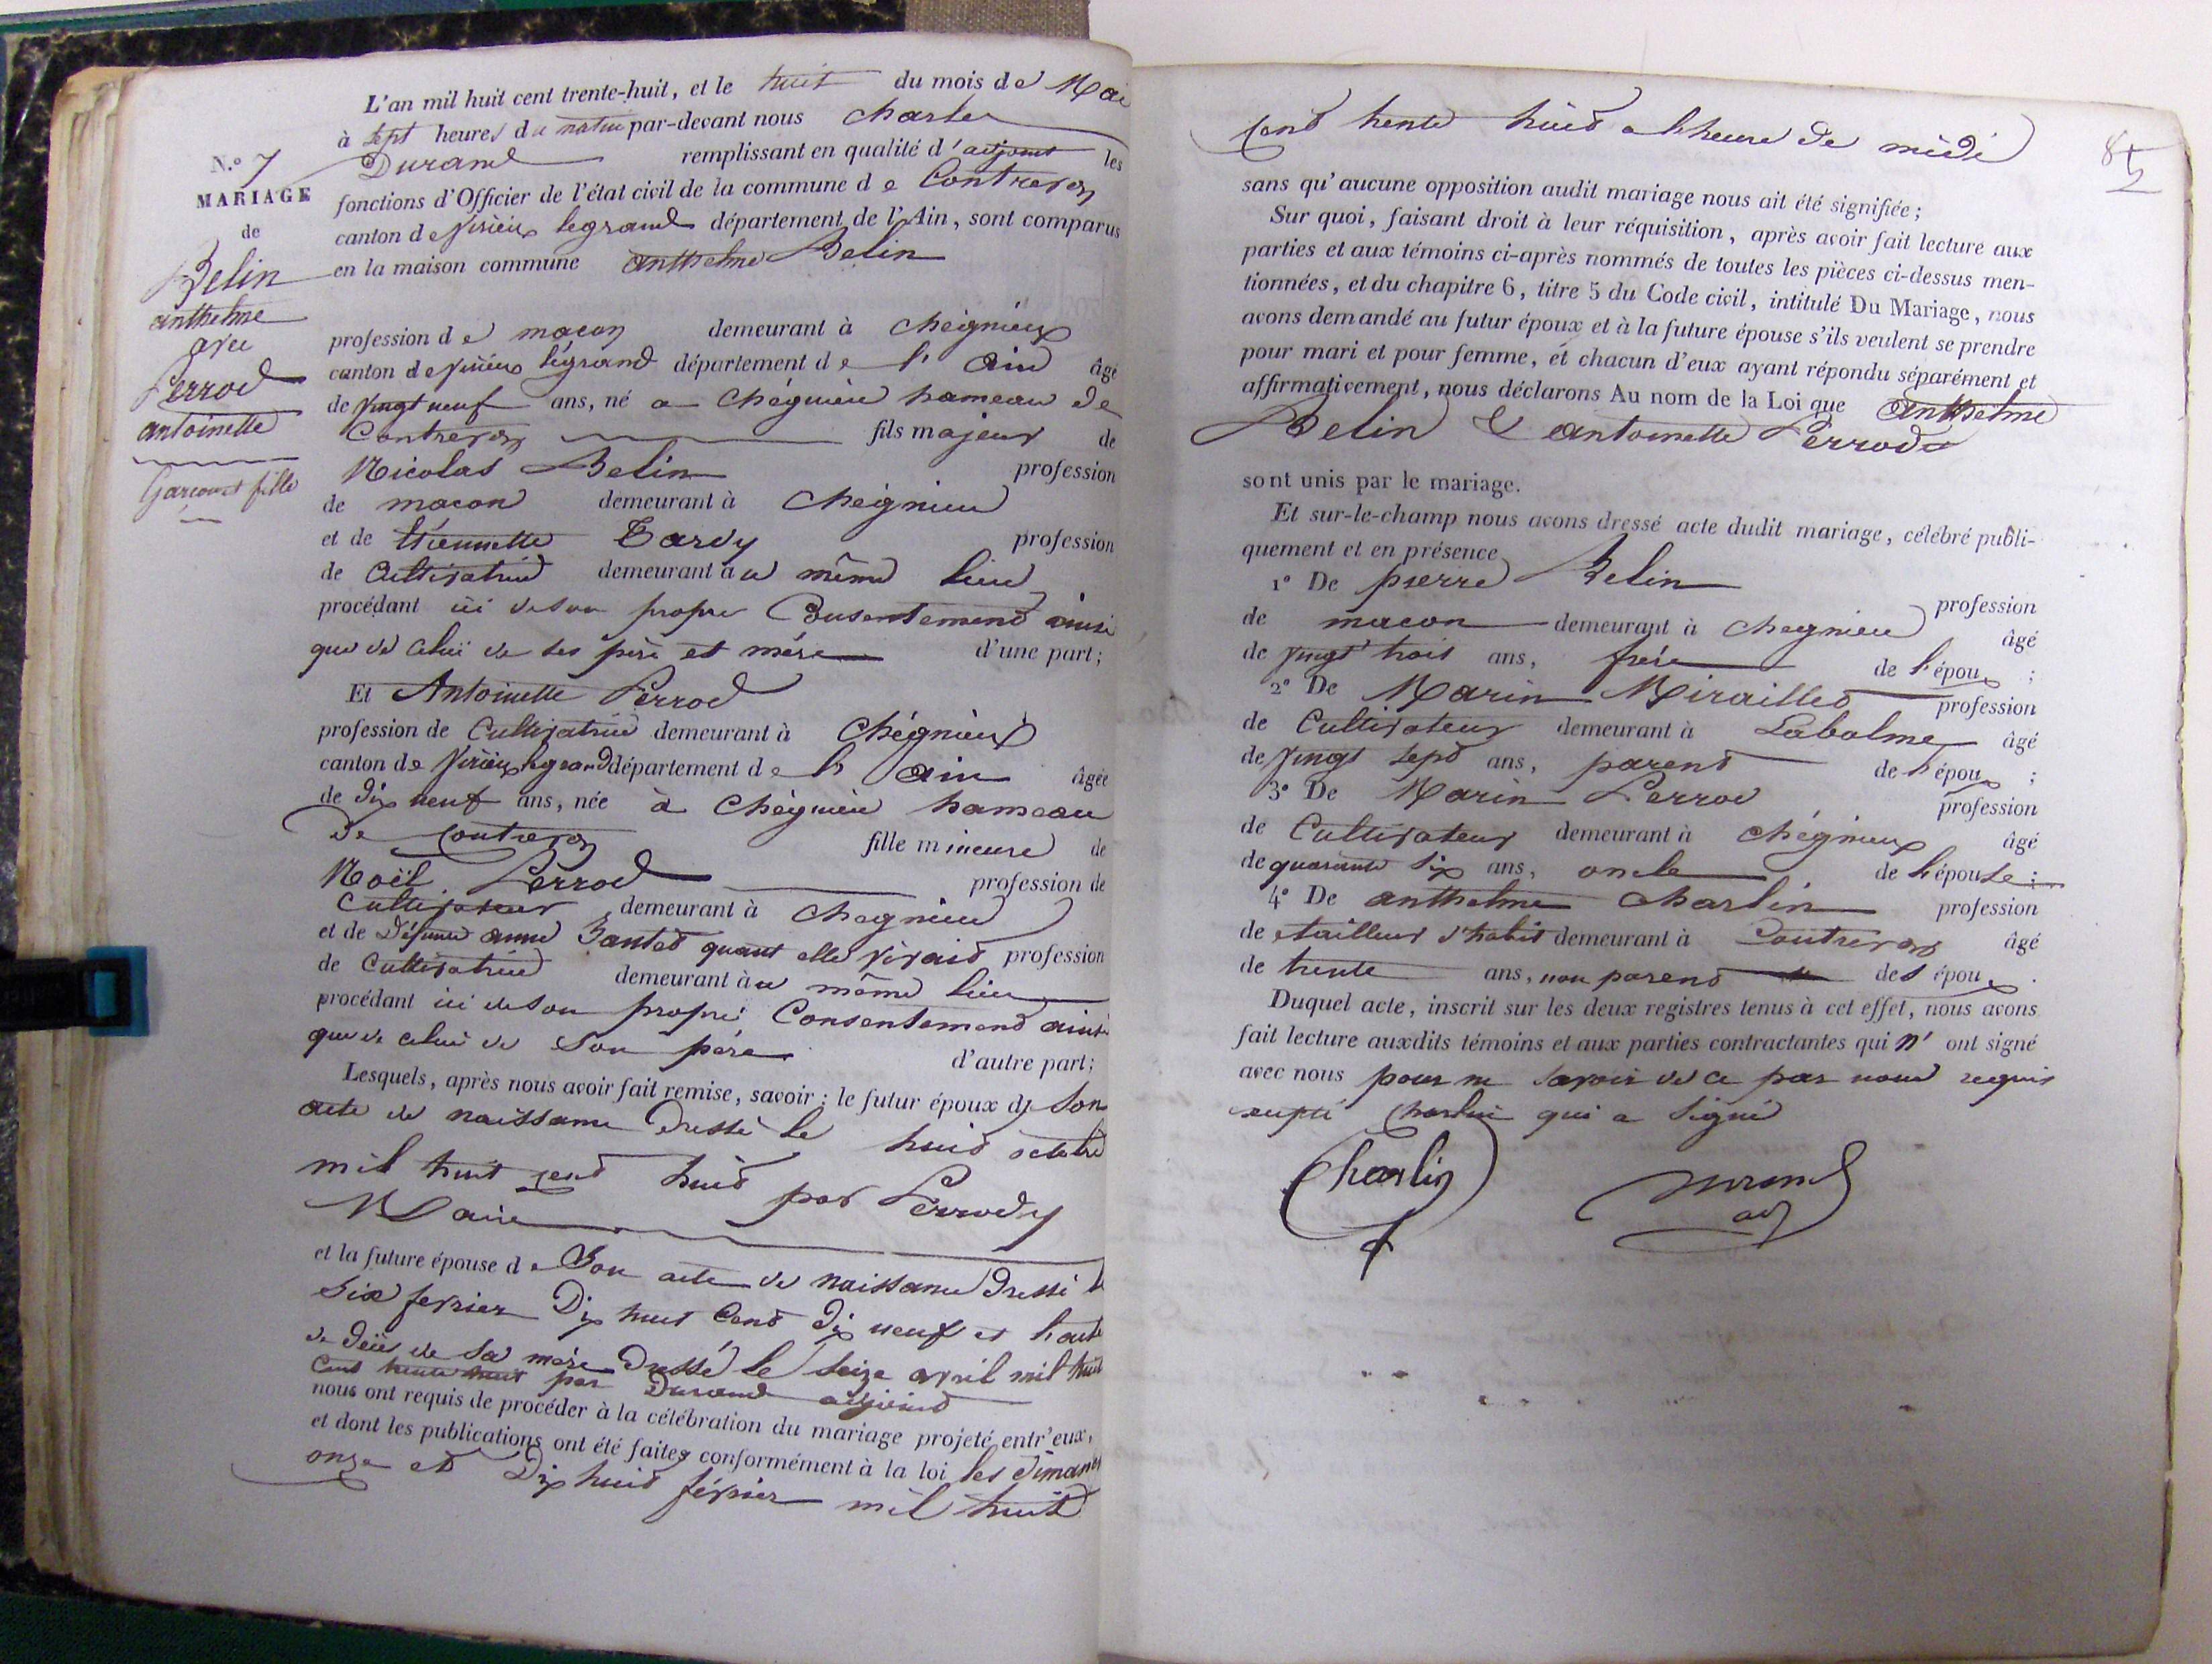 N.º 7
MARIAGE
de
Belin
anthelme
avec
Perrod
antoinette
Garçon et fille
L'an mil huit cent trente-huit, et le huit du mois de Mai
à sept heures du matin par-devant nous Charles
Durand remplissant en qualité d'adjoint les
fonctions d'Officier de l'état civil de la commune de Contrevoz
canton de Virieux legrand département de l'Ain, sont comparus
en la maison commune anthelme Belin
profession de maçon demeurant à Chégnieux
canton de Virieux légrand département de l'Ain âgé
de vingt neuf ans, né a Chégnieu hameau de
Contrevoz fils majeur de
Nicolas Belin profession
de macon demeurant à Chégnieu
et de Etiennette Tardy profession
de Cultivatrice demeurant au même lieu
procédant ici de son propre Consentement ainsi
que de celui de ses père et mère d'une part;
Et Antoinette Perrod
profession de Cultivatrice demeurant à Chégnieux
canton de Virieux legrand département de l'ain âgée
de dix neuf ans, née à Chégnieu hameau
de Contrevoz fille mineure de
Noël Perrod profession de
Cultivateur demeurant à Chegnieu
et de Défunte anne quant elle vivait profession
de Cultivatrice demeurant au même lieu
procédant ici de son propre Consentement ainsi
que de celui de son père d'autre part;
Lesquels, après nous avoir fait remise, savoir: le futur époux de son
acte de naissance dressé le huit octobre
mil huit cent huit par Perrody
Maire
et la future épouse de Son acte de naissance dressé le
six fevrier Dix huit Cent dix neuf et l'acte
de décès de sa mère dressé le seize avril mil huit
cent trente huit par Durand adjoint
nous ont requis de procéder à la célébration du mariage projeté entr'eux,
et dont les publications ont été faites conformément à la loi les dimanches
onze et Dix huit février mil huit
Cent trente huit a l'heure de midi
sans qu'aucune opposition audit mariage nous ait été signifiée;
Sur quoi, faisant droit à leur réquisition, après avoir fait lecture aux
parties et aux témoins ci-après nommés de toutes les pièces ci-dessus men-
tionnées, et du chapitre 6, titre 5 du Code civil, intitulé Du Mariage, nous
avons demandé au futur époux et à la future épouse s'ils veulent se prendre
pour mari et pour femme, et chacun d'eux ayant répondu séparément et
affirmativement, nous déclarons Au nom de la Loi que anthelme
Belin & antoinette Perrod
sont unis par le mariage.
Et sur-le-champ nous avons dressé acte dudit mariage, célébré publi-
quement et en présence
1º De pierre Belin profession
de macon demeurant à Chegnieu âgé
de vingt trois ans, frère de l'époux ;
2º De Marin Miraillet profession
de Cultivateur demeurant à Labalme âgé
de vingt sept ans, parent de l'époux ;
3º De Marin Perrod profession
de Cultivateur demeurant à Chégnieux âgé
de quarante six ans, oncle de l'épouse ;
4º De anthelme Charlin profession
de tailleur d'habit demeurant à Contrevoz âgé
de trente ans, non parent des époux .
Duquel acte, inscrit sur les deux registres tenus à cet effet, nous avons
fait lecture auxdits témoins et aux parties contractantes qui n'ont signé
avec nous pour ne savoir de ce par nous requis
excepté Charlin qui a signé
Charlin Durand
adj